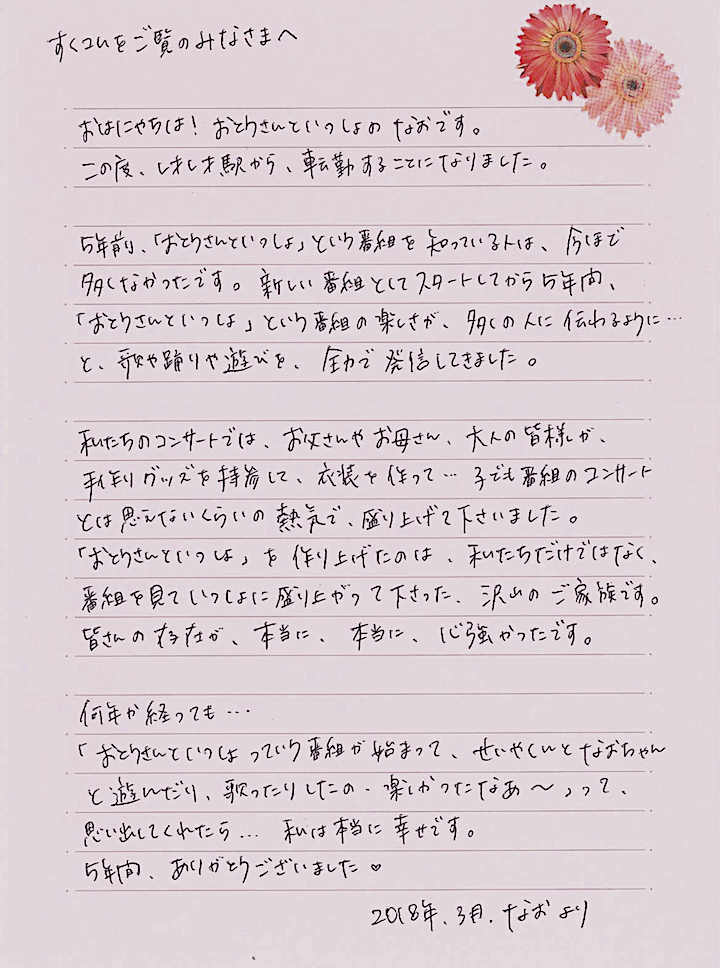 すくコムをご覧のみなさまへ
おはにゃちは！おとうさんといっしょの なおです。
この度、レオレオ駅から、転勤することになりました。
5年前、「おとうさんといっしょ」という番組を 知っている人は、今ほど
多くなかったです。新しい番組としてスタートしてから5年間、
「おとうさんといっしょ」という番組の楽しさが、多くの人に伝わるように…
と、歌や踊りや遊びを、全力で発信してきました。
私たちのコンサートでは、お父さんやお母さん、大人の皆様が、
手作りグッズを持参して、衣装を作って… 子ども番組のコンサート
とは思えないくらいの熱気で、盛り上げて下さいました。
「おとうさんといっしょ」を作り上げたのは、私たちだけではなく、
番組を見ていっしょに盛り上がって下さった、沢山のご家族です。
皆さんの存在が、本当に、本当に、心強かったです。
何年か経っても…
「おとうさんといっしょっていう番組が始まって、せいやくんとなおちゃん
と遊んだり、歌ったりしたの、楽しかったなあ〜」って、
思い出してくれたら… 私は本当に幸せです。
5年間、ありがとうございました♡
2018年、3月、なおより